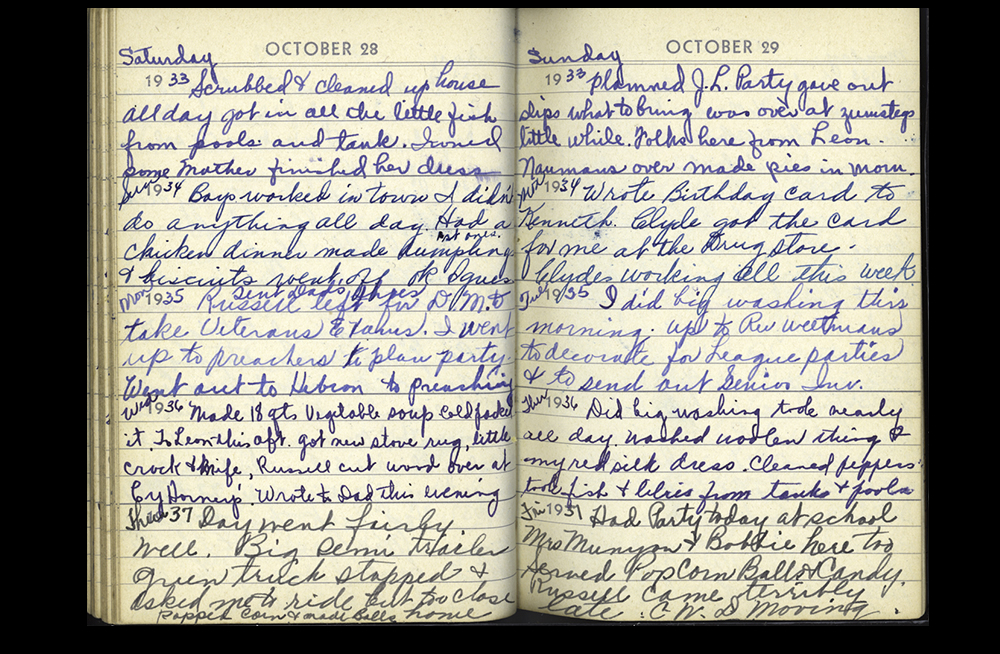 Saturday
OCTOBER 28
1933 Scrubbed & cleaned up house
all day got in all the little fish
from pools and tank. Ironed
some Mother finished her dress
Sun 1934 Boys worked in town I didn't
do anything all day Had a
chicken dinner made dumplings
& biscuits went off ok I guess
Mon 1935 Russell left for D.M. to
take Veterans Exams. I went
up to preachers to plan party.
Went out to Hebron to preaching
Wed 1936 Made 18 qts Vegetable soup cold packed
it. To Leon this aft. got new stove rug, little
crock & knife, Russell cut wood over at
Wrote to Dad this evening
Thur 37 Day went fairly
well. Big semi trailer
green truck stopped &
asked me to ride but too close
Popped Corn & made Balls home
Sunday
OCTOBER 29
1933 Planned J.L. Party gave out
slips what to bring was over at Zumstegs
little while. Folks here from Leon.
Naumans over made pies in morn.
Mon 1934 Wrote Birthday card to
Kenneth. Clyde got the card
for me at the Drug store.
Clydes working all this week
Tue 1935 I did big washing this
morning. up to Rev
to decorate for League parties
& to send out Senior Inv.
Thur 1936 Did big washing took nearly
all day. Washed woolen thing &
my red silk dress. Cleaned peppers
took fish & lilies from tanks & pools
Fri 1937 Had Party today at school
Mrs Munyon & Bobbie here too
Served Pop Corn Balls & Candy.
Russell came terribly
late. C.W. & D Moving.